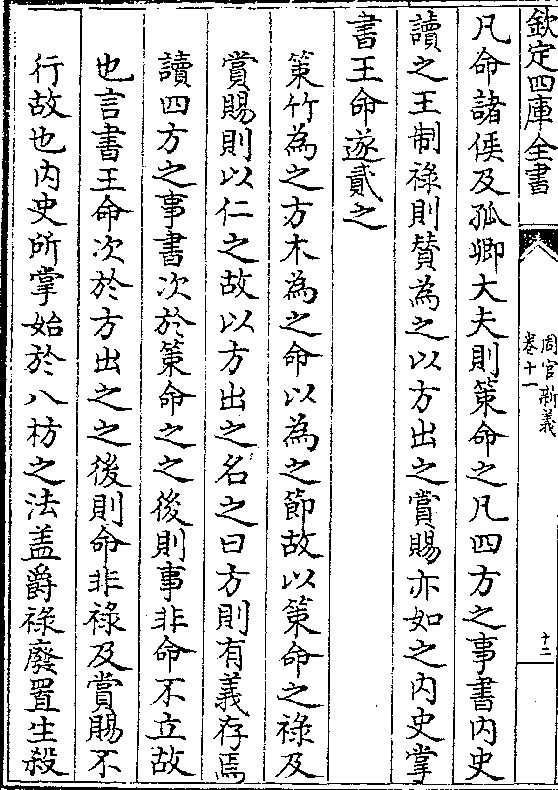 欽定四庫全書
周官新義
卷十一
十二
凡命諸侯及孤卿大夫則策命之凡四方之事書内史
讀之王制祿則賛為之以方出之賞賜亦如之内史掌
書王命遂貳之
策竹為之方木為之命以為之節故以策命之祿及
賞賜則以仁之故以方出之名之曰方則有義存焉
讀四方之事書次於策命之之後則事非命不立故
也言書王命次於方出之之後則命非祿及賞賜不
行故也内史所掌始於八枋之法盖爵祿廢置生殺